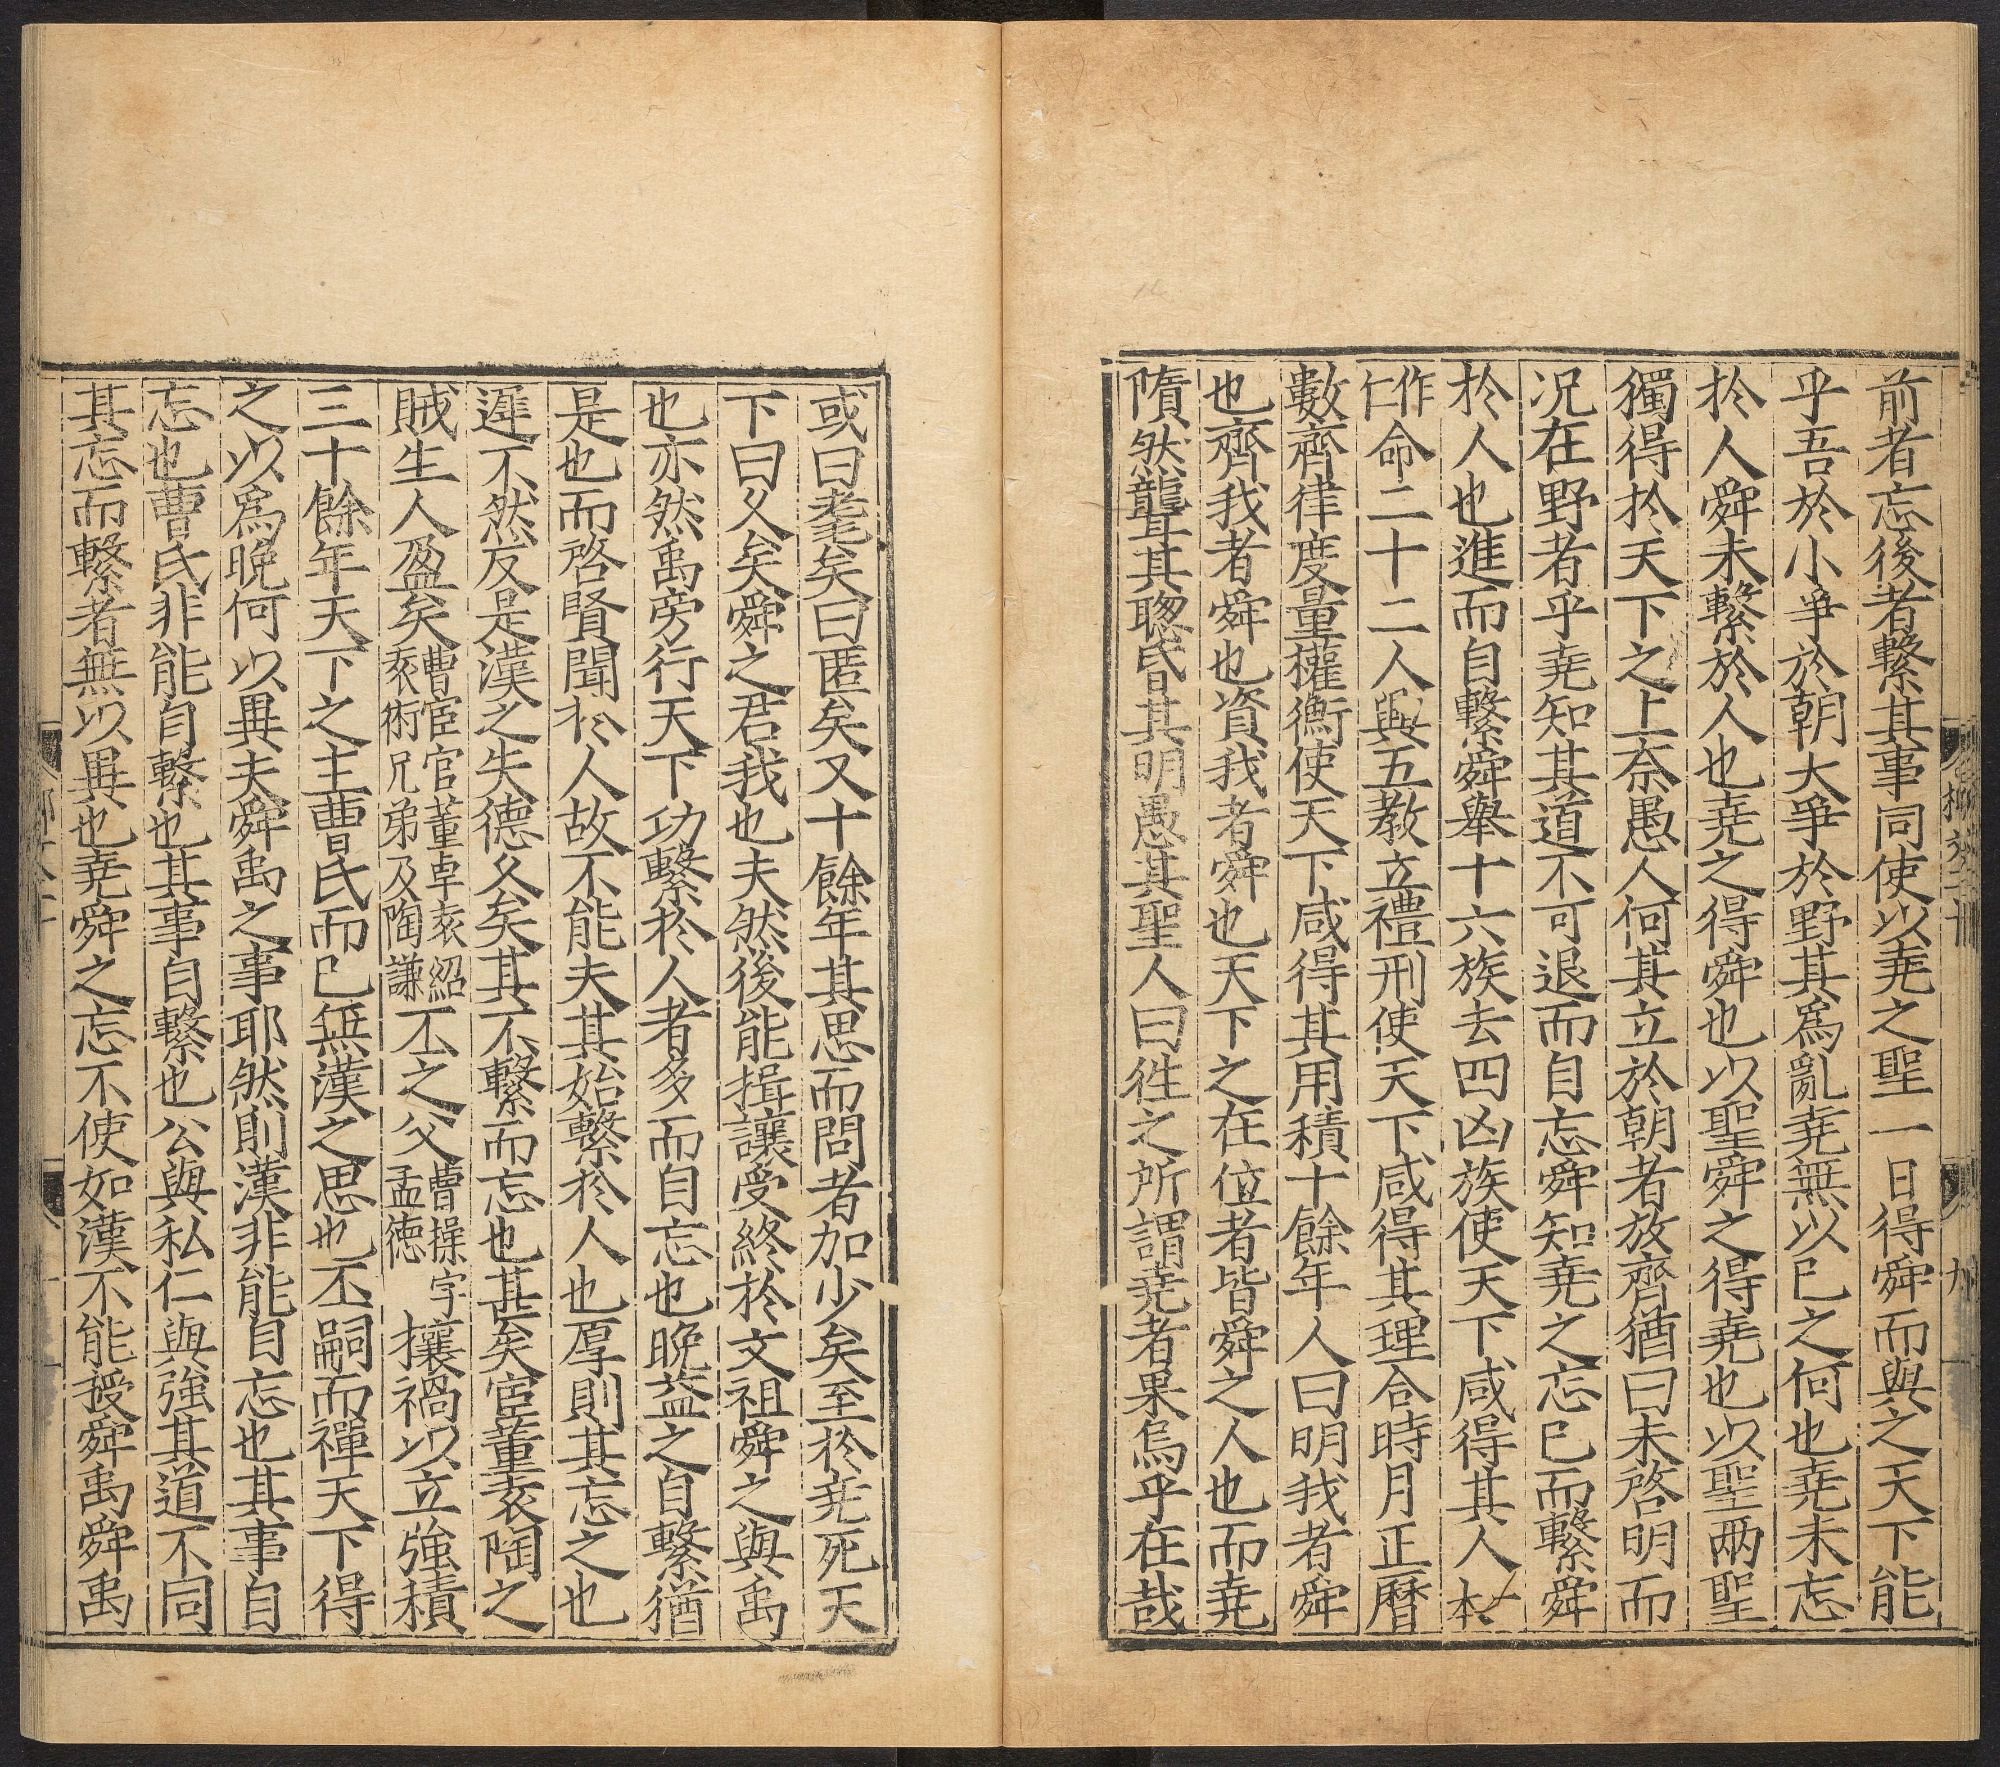 前者忘後者繫其事同使以堯之聖一日得舜而與之天下能
乎吾於小爭於朝大爭於野其爲亂堯無以已之何也堯未忘
於人舜未繫於人也堯之得舜也以聖舜之得堯也以聖兩聖
獨得於天下之上奈愚人何其立於朝者放齊猶曰未啓明而
况在野者乎堯知其道不可退而自忘舜知堯之忘已而繫舜
於人也進而自繫舜舉十六族去四凶族使天下咸得其人本
作仁命二十二人與五教立禮刑使天下咸得其理合時月正曆
數齊律度量權衡使天下咸得其用積十餘年人曰明我者舜
也齊我者舜也資我者舜也天下之在位者皆舜之人也而堯
隤然聾其聦昏其明愚其聖人曰徃之所謂堯者果烏乎在哉
或曰耄矣曰匿矣又十餘年其思而問者加少矣至於堯死天
下曰久矣舜之君我也夫然後能揖讓受終於文祖舜之與禹
也亦然禹旁行天下功繫於人者多而自忘也晩益之自繫猶
是也而啓賢聞於人故不能夫其始繫於人也厚則其忘之也
遲不然反是漢之失德久矣其不繫而忘也甚矣宦董袁陶之
賊生人盈矣曹宦官董卓袁紹袁術兄弟及陶謙丕之父曹操字孟德攘禍以立強積
三十餘年天下之主曹氏而已無漢之思也丕嗣而禪天下得
之以爲晚何以異夫舜禹之事耶然則漢非能自忘也其事自
忘也曹氏非能自繫也其事自繫也公與私仁與強其道不同
其忘而繫者無以異也堯舜之忘不使如漢不能授舜禹舜禹